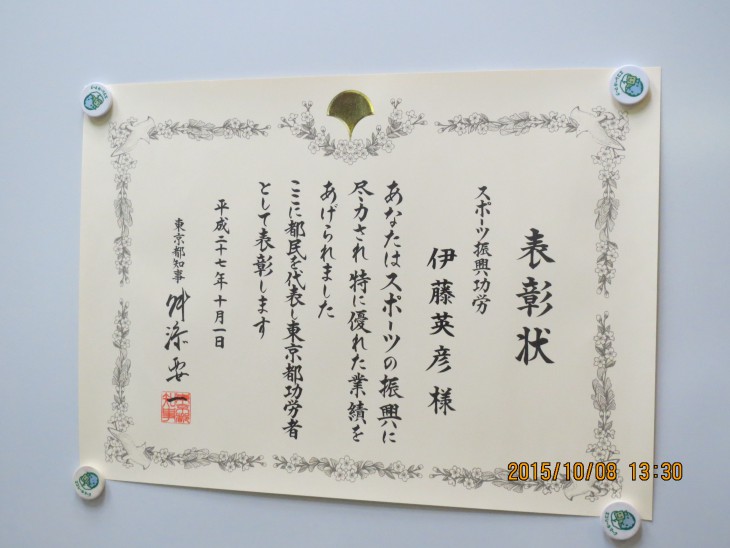 表彰状
スポーツ振興功労
伊藤英彦様
あなたはスポーツの振興に
尽力され特に優れた業績を
あげられました
ここに都民を代表し東京都功労者
として表彰します
平成二十七年十月一日
東京都知事 舛添要一
2015/10/08 13:30